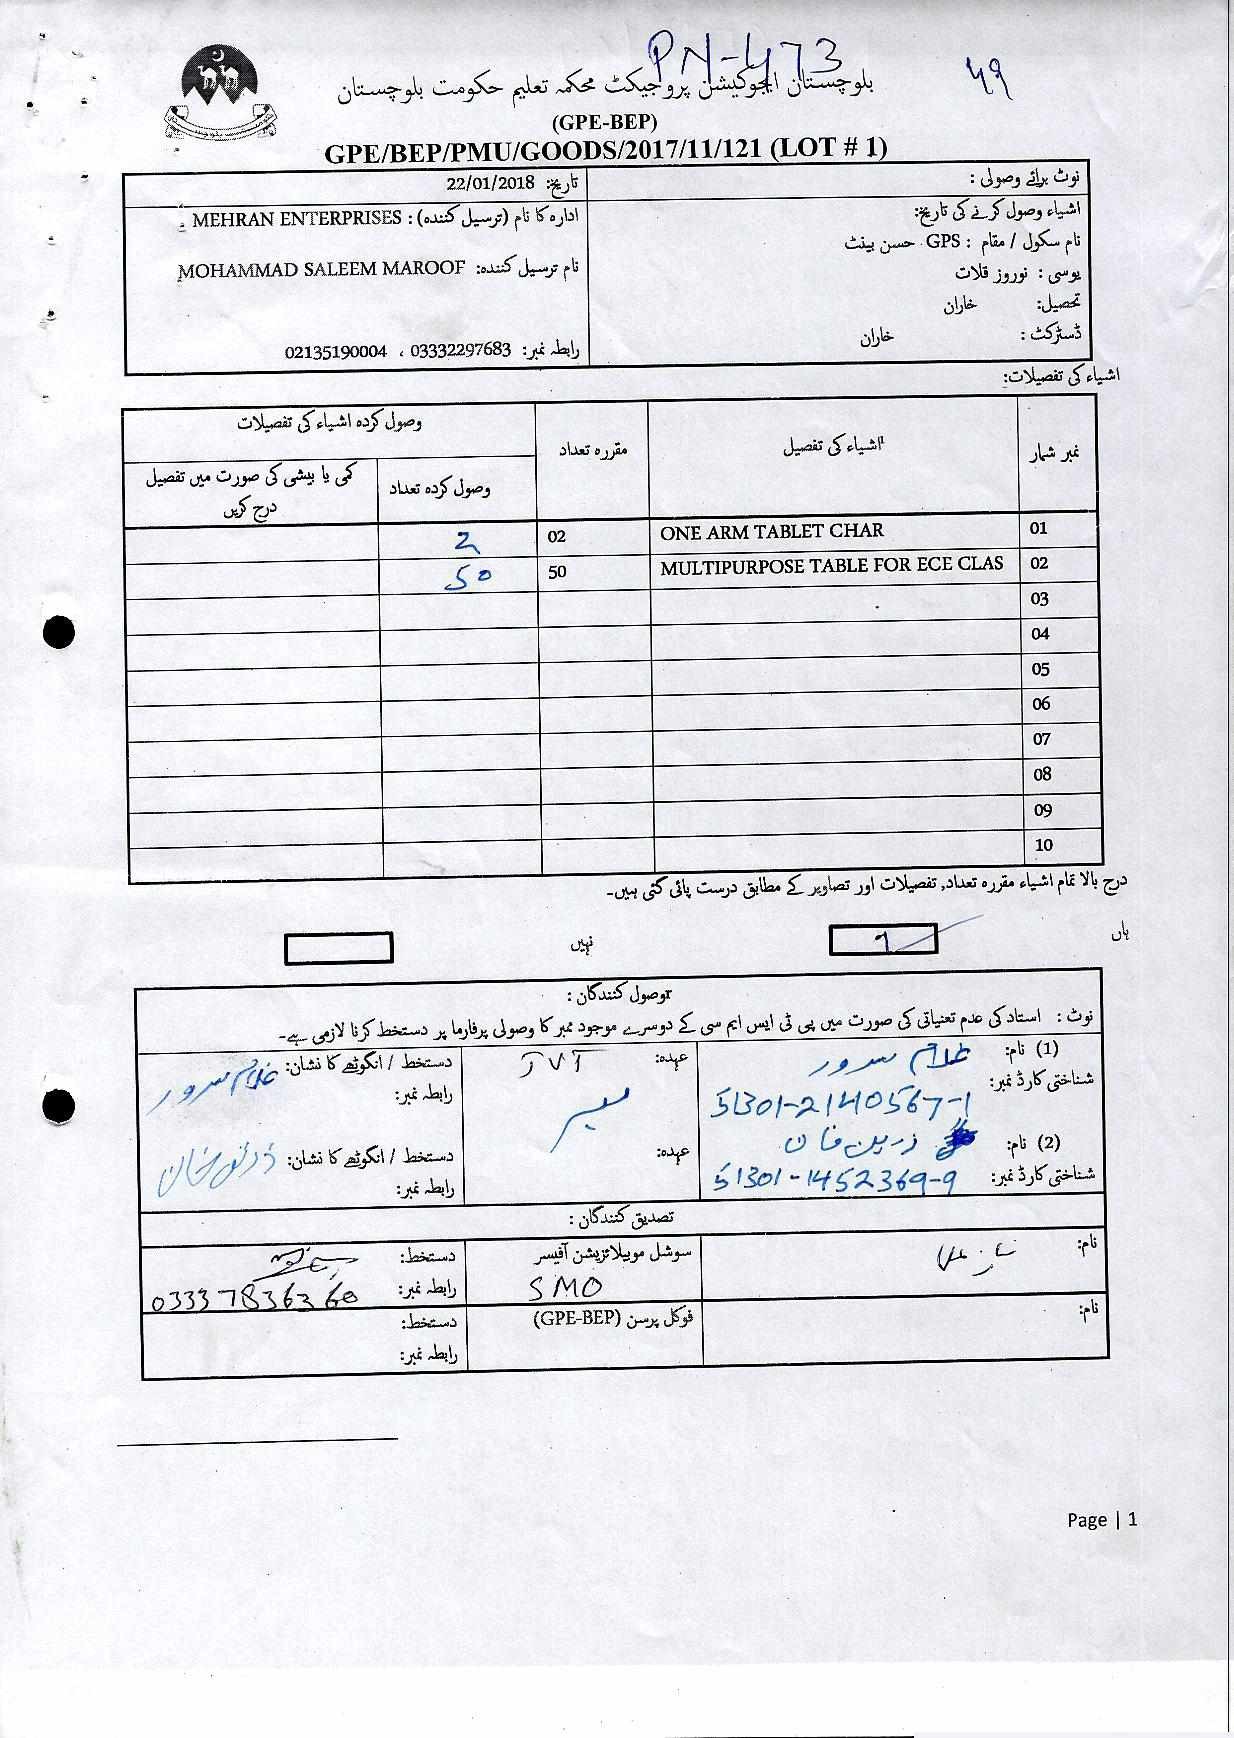 PN-473
49
بلوچستان ایجوکیشن پروجیکٹ محکمہ تعلیم حکومت بلوچستان
(GPE-BEP)
GPE/BEP/PMU/GOODS/2017/11/121 (LOT # 1)
نوٹ برائے وصولی :
تاریخ: 22/01/2018
اشیاء وصول کرنے کی تاریخ:
نام سکول / مقام : GPS حسن بینٹ
یوسی : نوروز قلات
تحصیل: خاران
ڈسٹرکٹ : خاران
ادارہ کا نام (ترسیل کنندہ) : MEHRAN ENTERPRISES
نام ترسیل کنندہ: MOHAMMAD SALEEM MAROOF
رابطہ نمبر: 03332297683 ، 02135190004
اشیاء کی تفصیلات:
نمبر شمار اشیاء کی تفصیل مقررہ تعداد وصول کردہ اشیاء کی تفصیلات
وصول کردہ تعداد کمی یا بیشی کی صورت میں تفصیل درج کریں
01 ONE ARM TABLET CHAR 02 2
02 MULTIPURPOSE TABLE FOR ECE CLAS 50 50
03
04
05
06
07
08
09
10
درج بالا تمام اشیاء مقررہ تعداد, تفصیلات اور تصاویر کے مطابق درست پائی گئی ہیں۔
ہاں نہیں
وصول کنندگان :
نوٹ : استاد کی عدم تعنیاتی کی صورت میں پی ٹی ایس ایم سی کے دوسرے موجود ممبر کا وصولی پرفارما پر دستخط کرنا لازمی ہے۔
(1) نام: غلام سرور عہدہ: JVT دستخط / انگوٹھے کا نشان: غلام سرور
شناختی کارڈ نمبر: 51301-2140567-1 رابطہ نمبر:
(2) نام: زرین خان عہدہ: ممبر دستخط / انگوٹھے کا نشان:
شناختی کارڈ نمبر: 51301-1452369-9 رابطہ نمبر:
تصدیق کنندگان :
نام: سوشل موبیلائزیشن آفیسر دستخط:
SMO رابطہ نمبر: 03337836360
نام: فوکل پرسن (GPE-BEP) دستخط:
رابطہ نمبر:
Page | 1